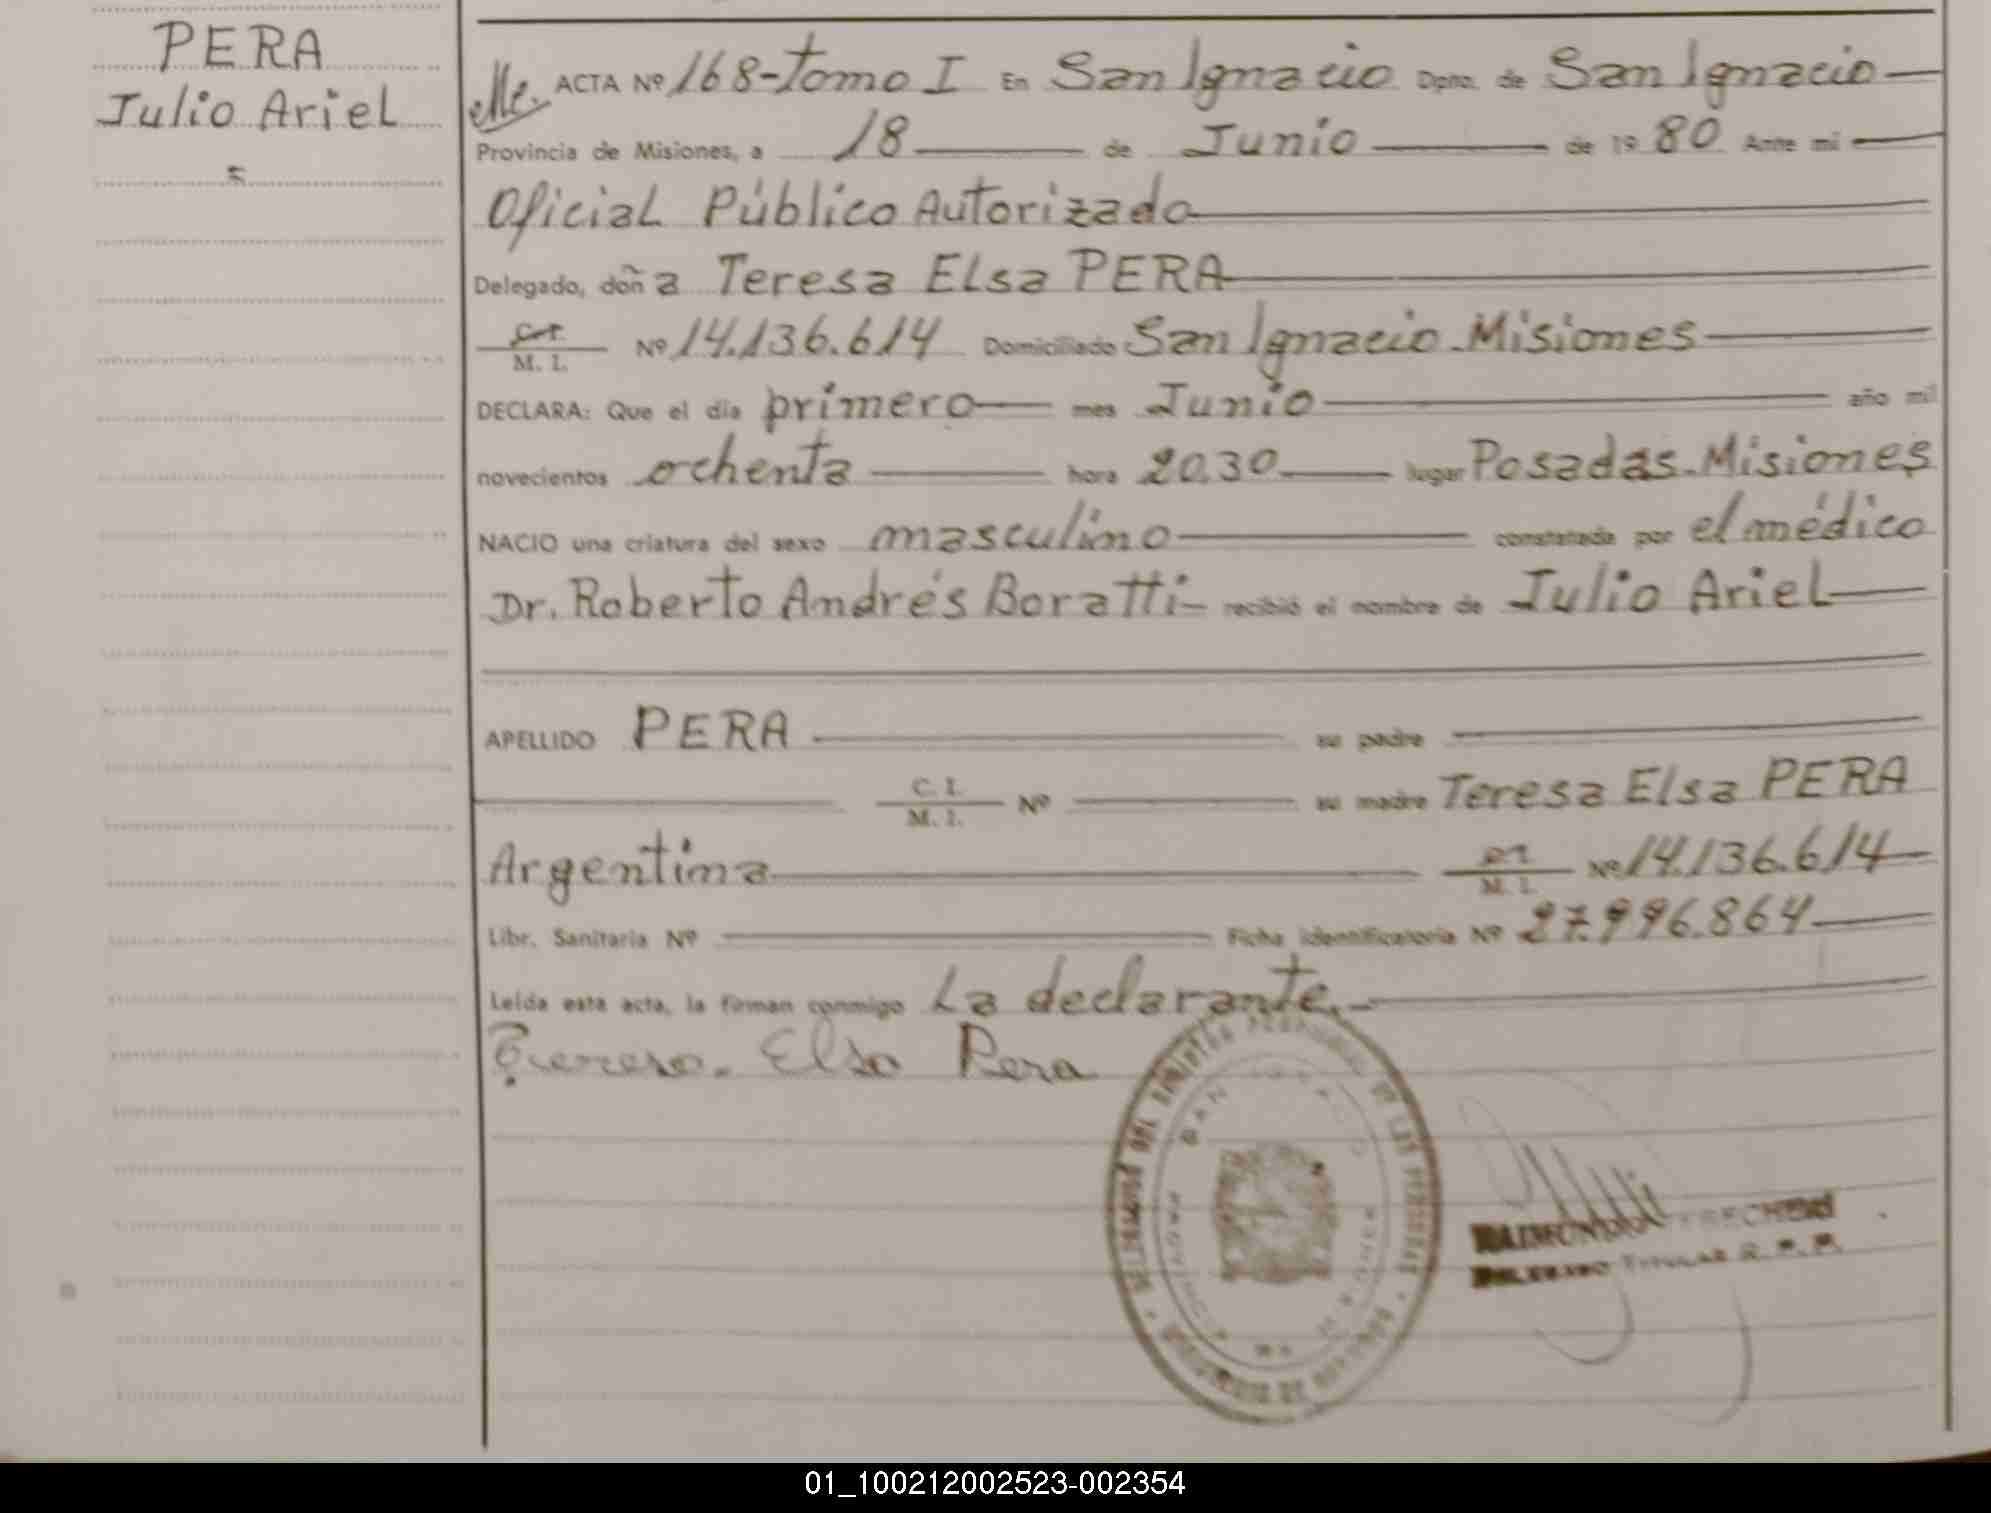 PERA
Julio Ariel
ACTA Nº 168-Tomo I En San Ignacio Dpto. de San Ignacio
Provincia de Misiones, a 18 de Junio de 1980 Ante mi
Oficial Público Autorizado
Delegado, doña Teresa Elsa PERA
C.I. / M. I. Nº 14.136.614 Domiciliado San Ignacio - Misiones
DECLARA: Que el día primero mes Junio año mil
novecientos ochenta hora 20.30 lugar Posadas - Misiones
NACIO una criatura del sexo masculino constatada por el médico
Dr. Roberto Andrés Boratti - recibió el nombre de Julio Ariel
APELLIDO PERA su padre
C. I. / M. I. Nº su madre Teresa Elsa PERA
Argentina M. I. Nº 14.136.614
Libr. Sanitaria Nº Ficha identificatoria Nº 27.996.864
Leída esta acta, la firman conmigo La declarante.-
Elsa Pera
SAN IGNACIO
DELEGADO TITULAR R. P. P.
01_100212002523-002354